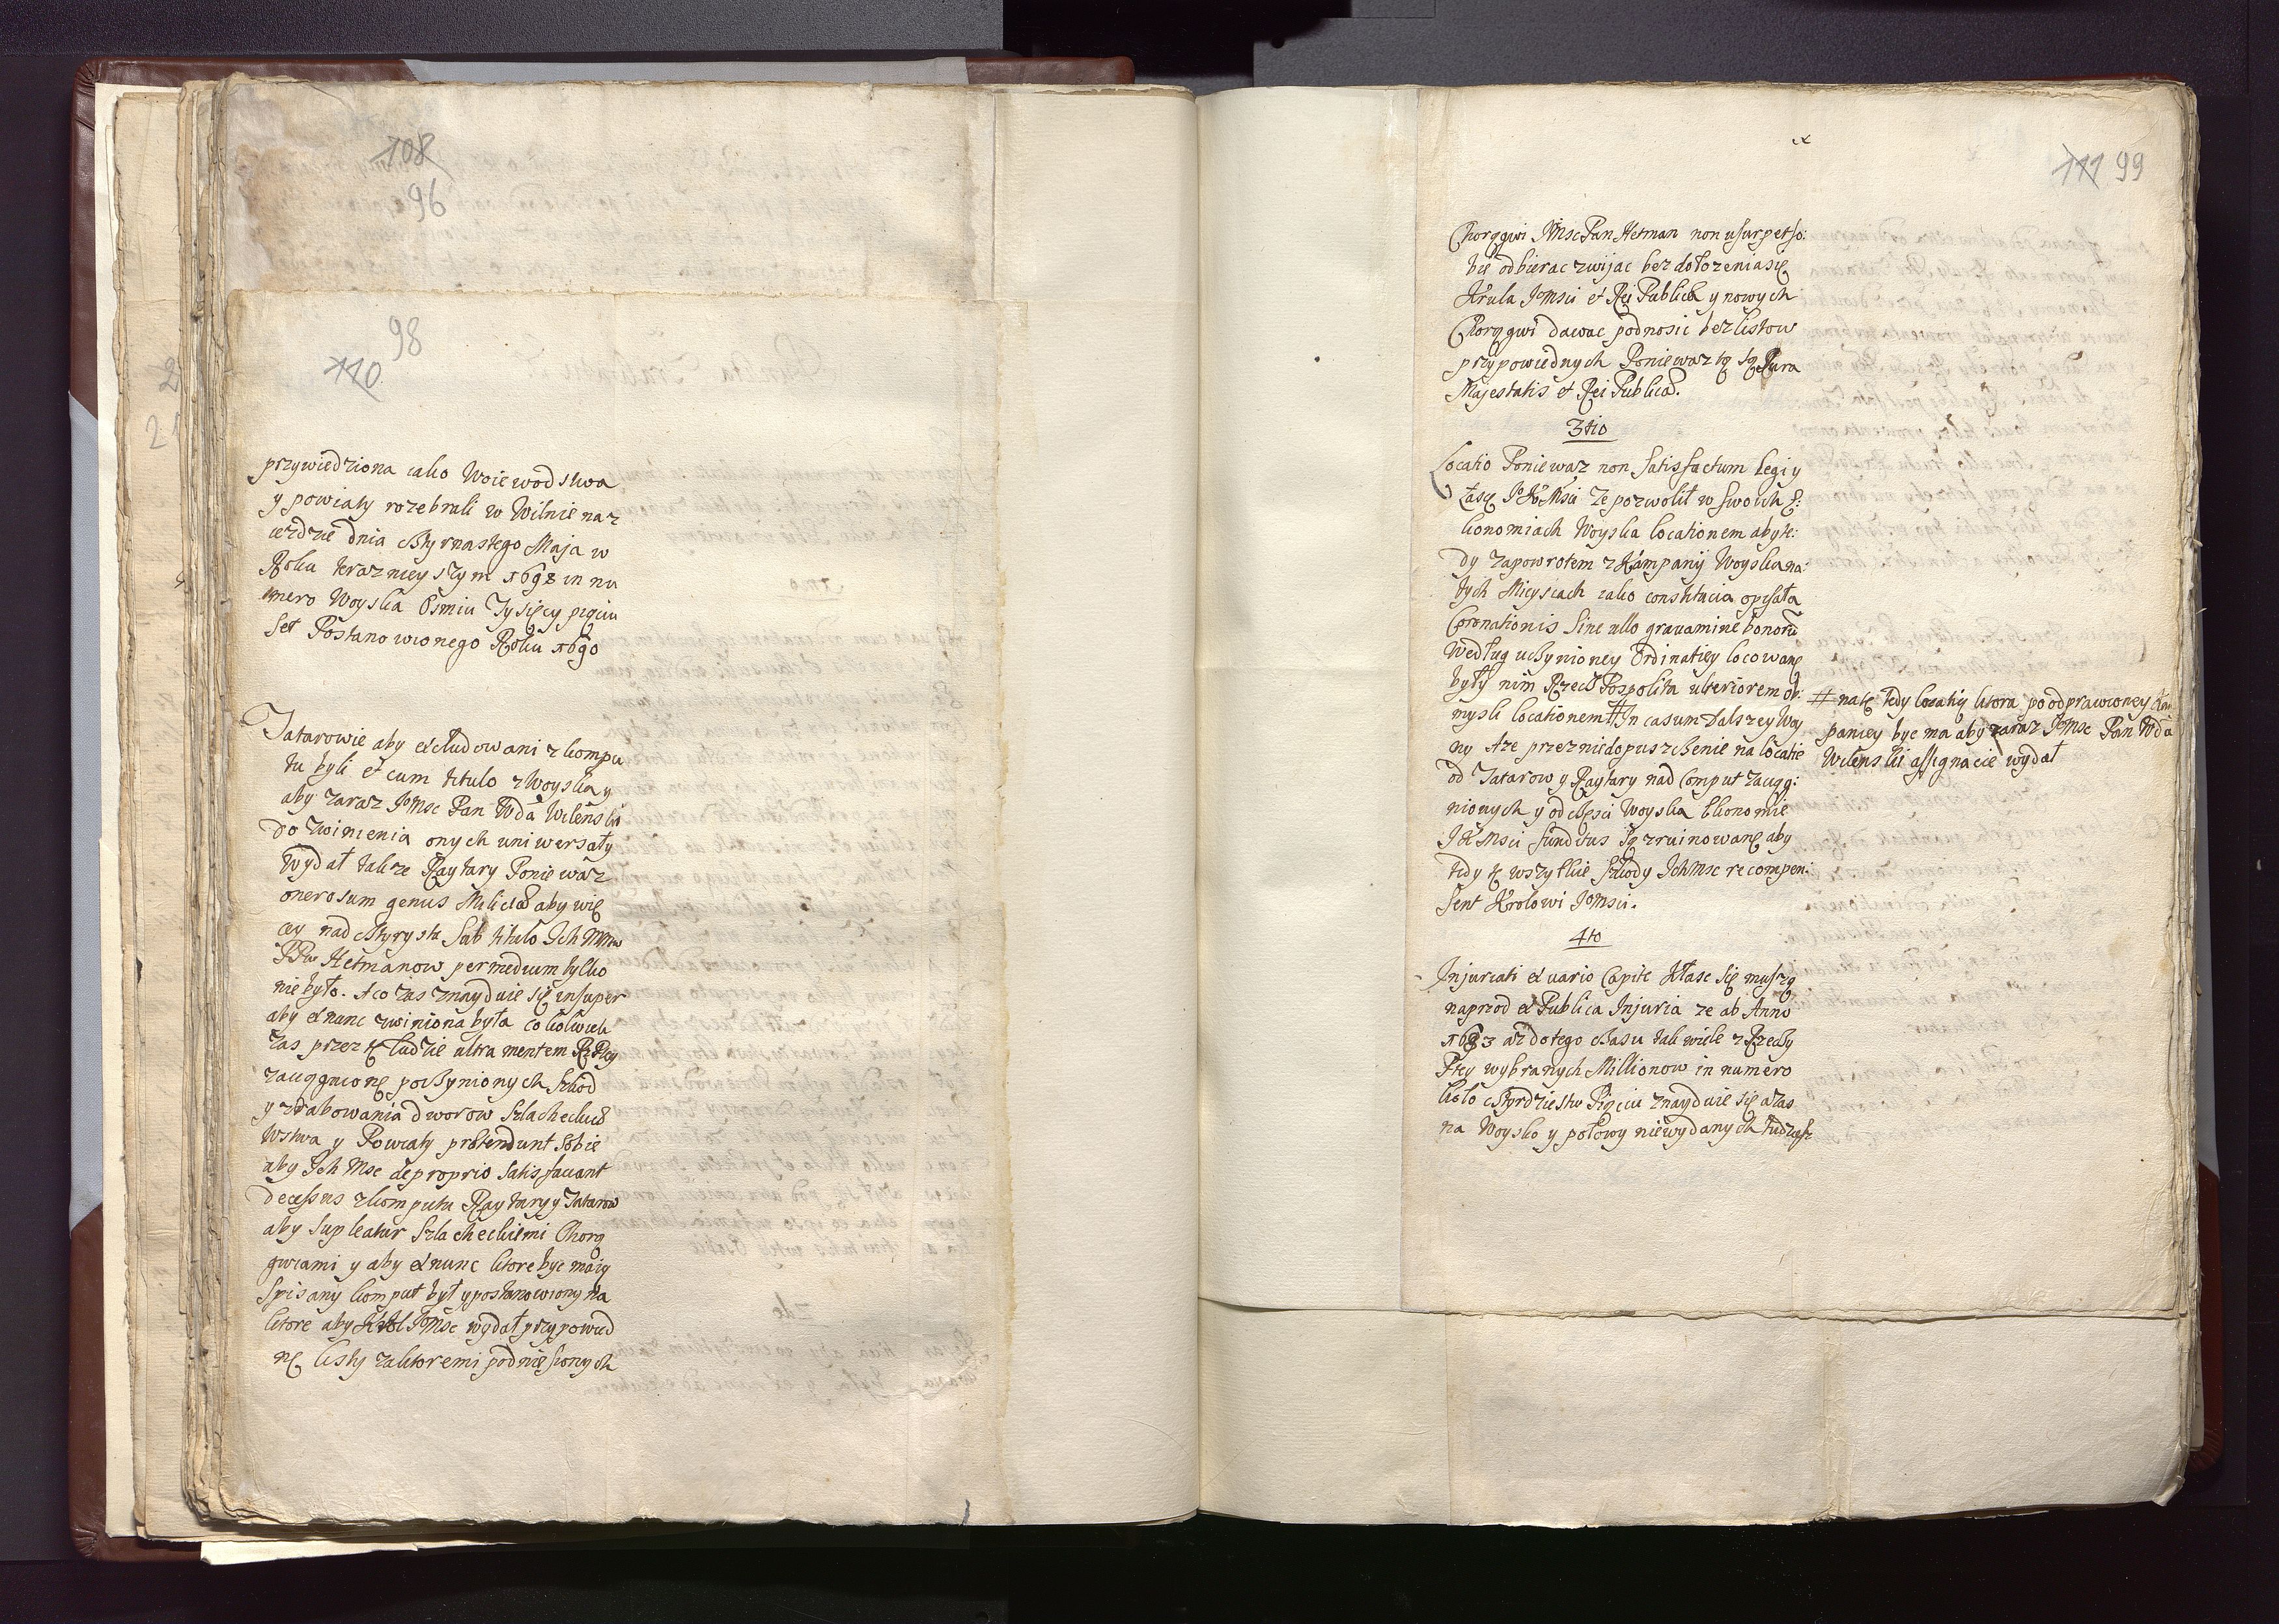 108
96
98
110
przywiedziona iako Woiewodstwa
y powiaty rozebrali w Wilnie na z
iezdzie dnia cztyrnastego Maja w
Roku teraznieyszym 1698 in nu
mero Woyska Osmiu Tysięcy pięciu
Set Postanowionego Roku 1690
Tatarowie aby excludowani z kompu
tu byli et cum titulo z Woyska y
aby zaraz JoMsc Pan Wda Wilenski
do zwinienia onych uniwersały
wydał takze Raytary Poniewaz
onerosum genus Militiae aby wię
cey nad cztyrysta Sub titulo Ich Mmw
PPw Hetmanow per medium tylko
nie było. A co zas znayduie się insuper
aby ex nunc zwiniona była cokolwiek
zas przez tę ludzie ultra mentem RzPtey
zaciągnionę poczynionych szkod
y zrabowania dworow szlacheckich
Wstwa y Powiaty praetendunt sobie
aby Ich Msc de proprio satisfaciant
decessus z komputu Raytaryy Tatarow
aby supleatur szlacheckiemi Chorą
gwiami y aby ex nunc ktore byc maią
Spisany komput był y postanowiony na
ktore aby Krol JoMsc wydał przypowied
nę listy za ktoremi podniesionych
111 99
Chorągwi JMsc Pan Hetman non usurpet so:
bie odbierac zwijac bez dołozenia się
Krula JoMsci et Rei Publicae y nowych
Chorągwi dawac podnosic bez listow
przypowiednych Poniewaz tę są Jura
Majestatis et Rei Publicae.
3tio
Locatio Poniewaz non Satisfactum legi y
Łasce JoKrMsci ze pozwolił w swoich E:
konomiach Woyska locationem aby te:
dy za powrotem z Kampanij Woyska na
tych Mieyscach iako constitucia opisała
Coronationis Sine ullo gravamine bonorū
Według uczynioney Ordinatiey locowanę
były nim Rzecz Pospolita ulteriorem ob:
mysli locationem # In casum dalszey Woy
ny A ze przez niedopuszczenie na locatie
od Tatarow y Raytary nad Comput zaciąg:
nionych y od części Woyska Ekonomie
JKMsci funditus są zruinowanę aby
tedy tę wszytkie szkody Ich Msc recompen:
sent Krolowi JoMsci.
# na tę tedy locatię ktora po odprawioney Kam
paniey byc ma aby zaraz JoMsc Pan Wda
Wilenski assignacie wydał
4to
Injuriati ex vario Capite Kłasc się muszą
naprzod ex Publica Injuria ze ab Anno
1683 az do tego czasu tak wiele z Rzeczy
Ptey wybranych Millionow in numero
koło cztyrdziestu Pięciu znayduie się a zas
na Woysko y połowy niewydanych tudziesz